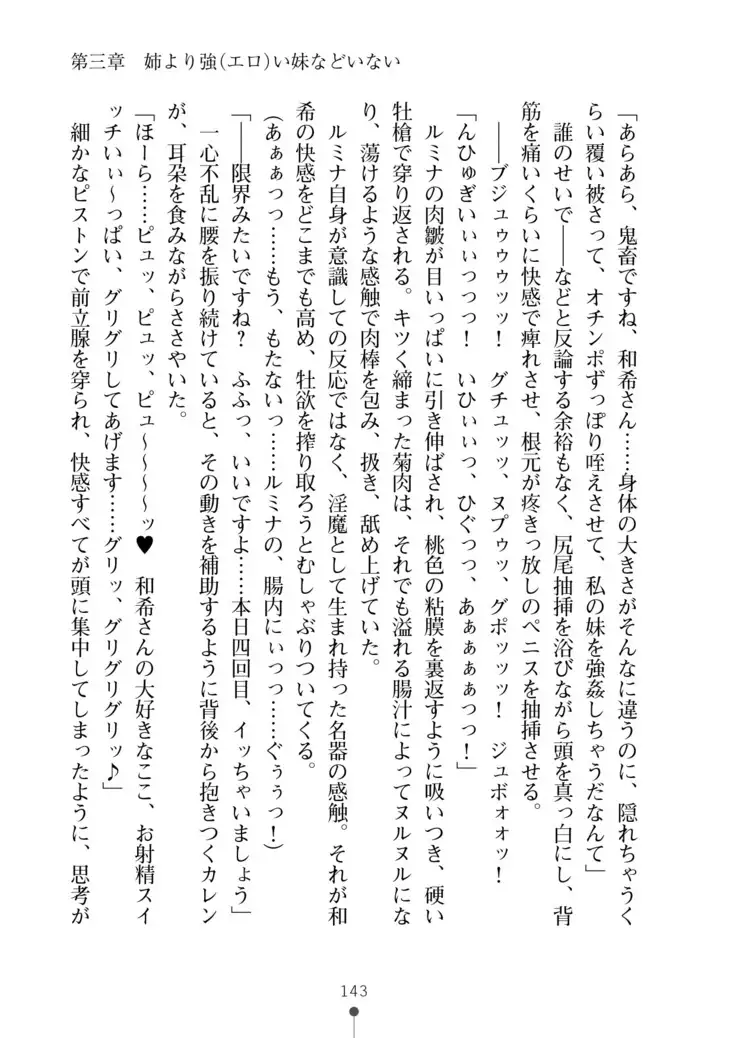 第三章　姉より強(エロ)い妹などいない
「あらあら、鬼畜ですね、和希さん……身体の大きさがそんなに違うのに、隠れちゃうく
らい覆い被さって、オチンポずっぽり咥えさせて、私の妹を強姦しちゃうだなんて」
　誰のせいで――などと反論する余裕もなく、尻尾抽挿を浴びながら頭を真っ白にし、背
筋を痛いくらいに快感で痺れさせ、根元が疼きっ放しのペニスを抽挿させる。
　――ブジュゥゥゥッッ！　グチュッッ、ヌプゥッ、グポッッッ！　ジュボォォッ！
「んひゅぎいぃぃっっっ！　いひぃぃっ、ひぐっっ、あぁぁぁぁっっ！」
　ルミナの肉皺が目いっぱいに引き伸ばされ、桃色の粘膜を裏返すように吸いつき、硬い
牡槍で穿り返される。キツく締まった菊肉は、それでも溢れる腸汁によってヌルヌルにな
り、蕩けるような感触で肉棒を包み、扱き、舐め上げていた。
　ルミナ自身が意識しての反応ではなく、淫魔として生まれ持った名器の感触。それが和
希の快感をどこまでも高め、牡欲を搾り取ろうとむしゃぶりついてくる。
（あぁぁっっ……もう、もたないっ……ルミナの、腸内にぃっっ……ぐぅぅっ！）
「――限界みたいですね？　ふふっ、いいですよ……本日四回目、イッちゃいましょう」
　一心不乱に腰を振り続けていると、その動きを補助するように背後から抱きつくカレン
が、耳朶を食みながらささやいた。
「ほーら……ピュッ、ピュッ、ピュ～～～～ッ♥　和希さんの大好きなここ、お射精スイ
ッチいぃ～っぱい、グリグリしてあげます……グリッ、グリグリグリッ♪」
　細かなピストンで前立腺を穿られ、快感すべてが頭に集中してしまったように、思考が
143